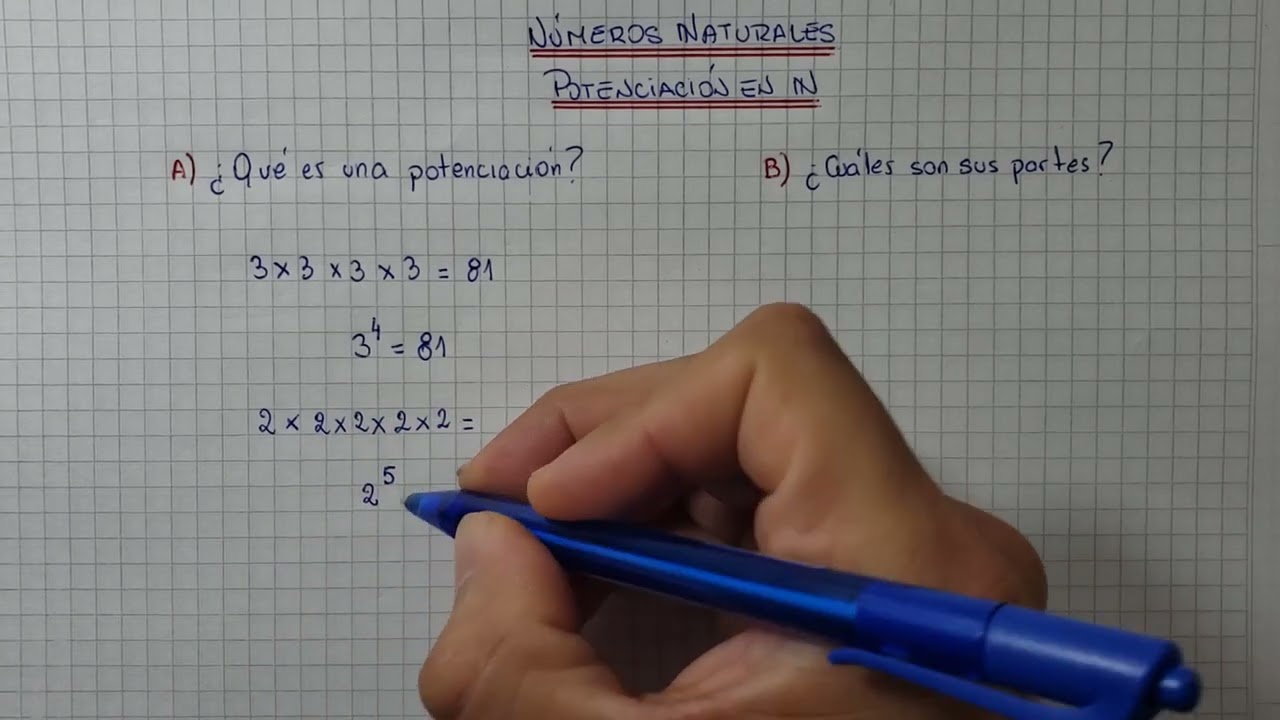 NÚMEROS NATURALES
POTENCIACIÓN EN IN
A) ¿Qué es una potenciación?
B) ¿Cuáles son sus partes?
3 × 3 × 3 × 3 = 81
3⁴ = 81
2 × 2 × 2 × 2 × 2 =
2⁵